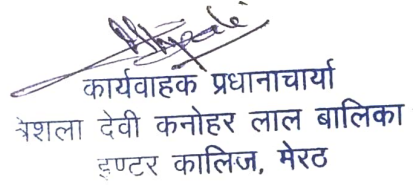 कार्यवाहक प्रधानाचार्या
त्रेशला देवी कनोहर लाल बालिका
इण्टर कालिज, मेरठ